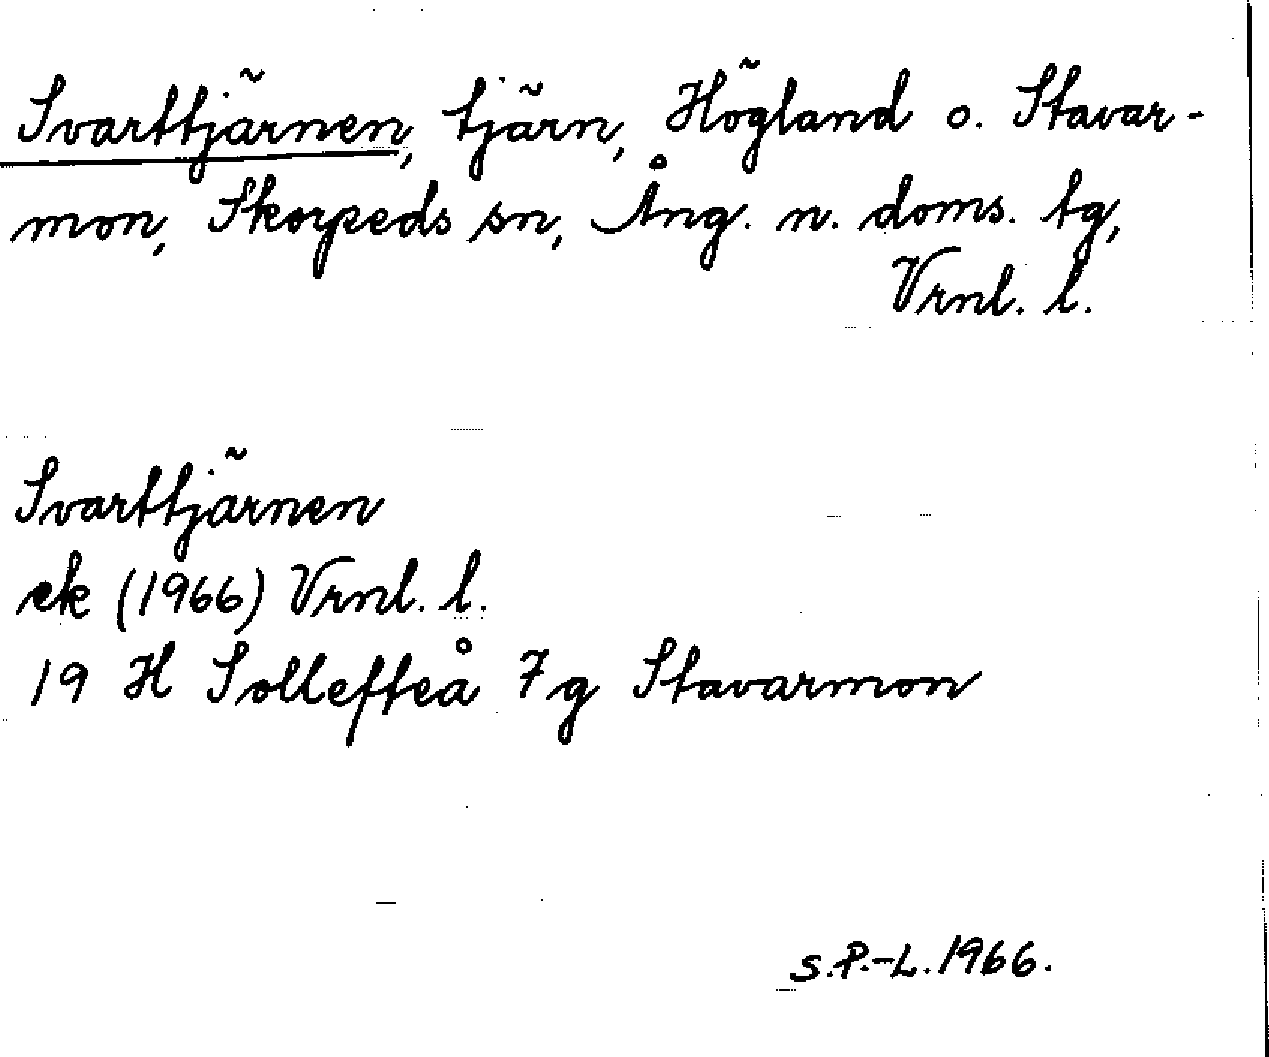 Svarttjärnen, tjärn, Högland o. Stavar-
mon, Skorpeds sn, Ång. n. doms. tg,
Vrnl. l.
Svarttjärnen
ek (1966) Vrnl. l.
19 H Sollefteå 7g Stavarmon
S.P.-L. 1966.